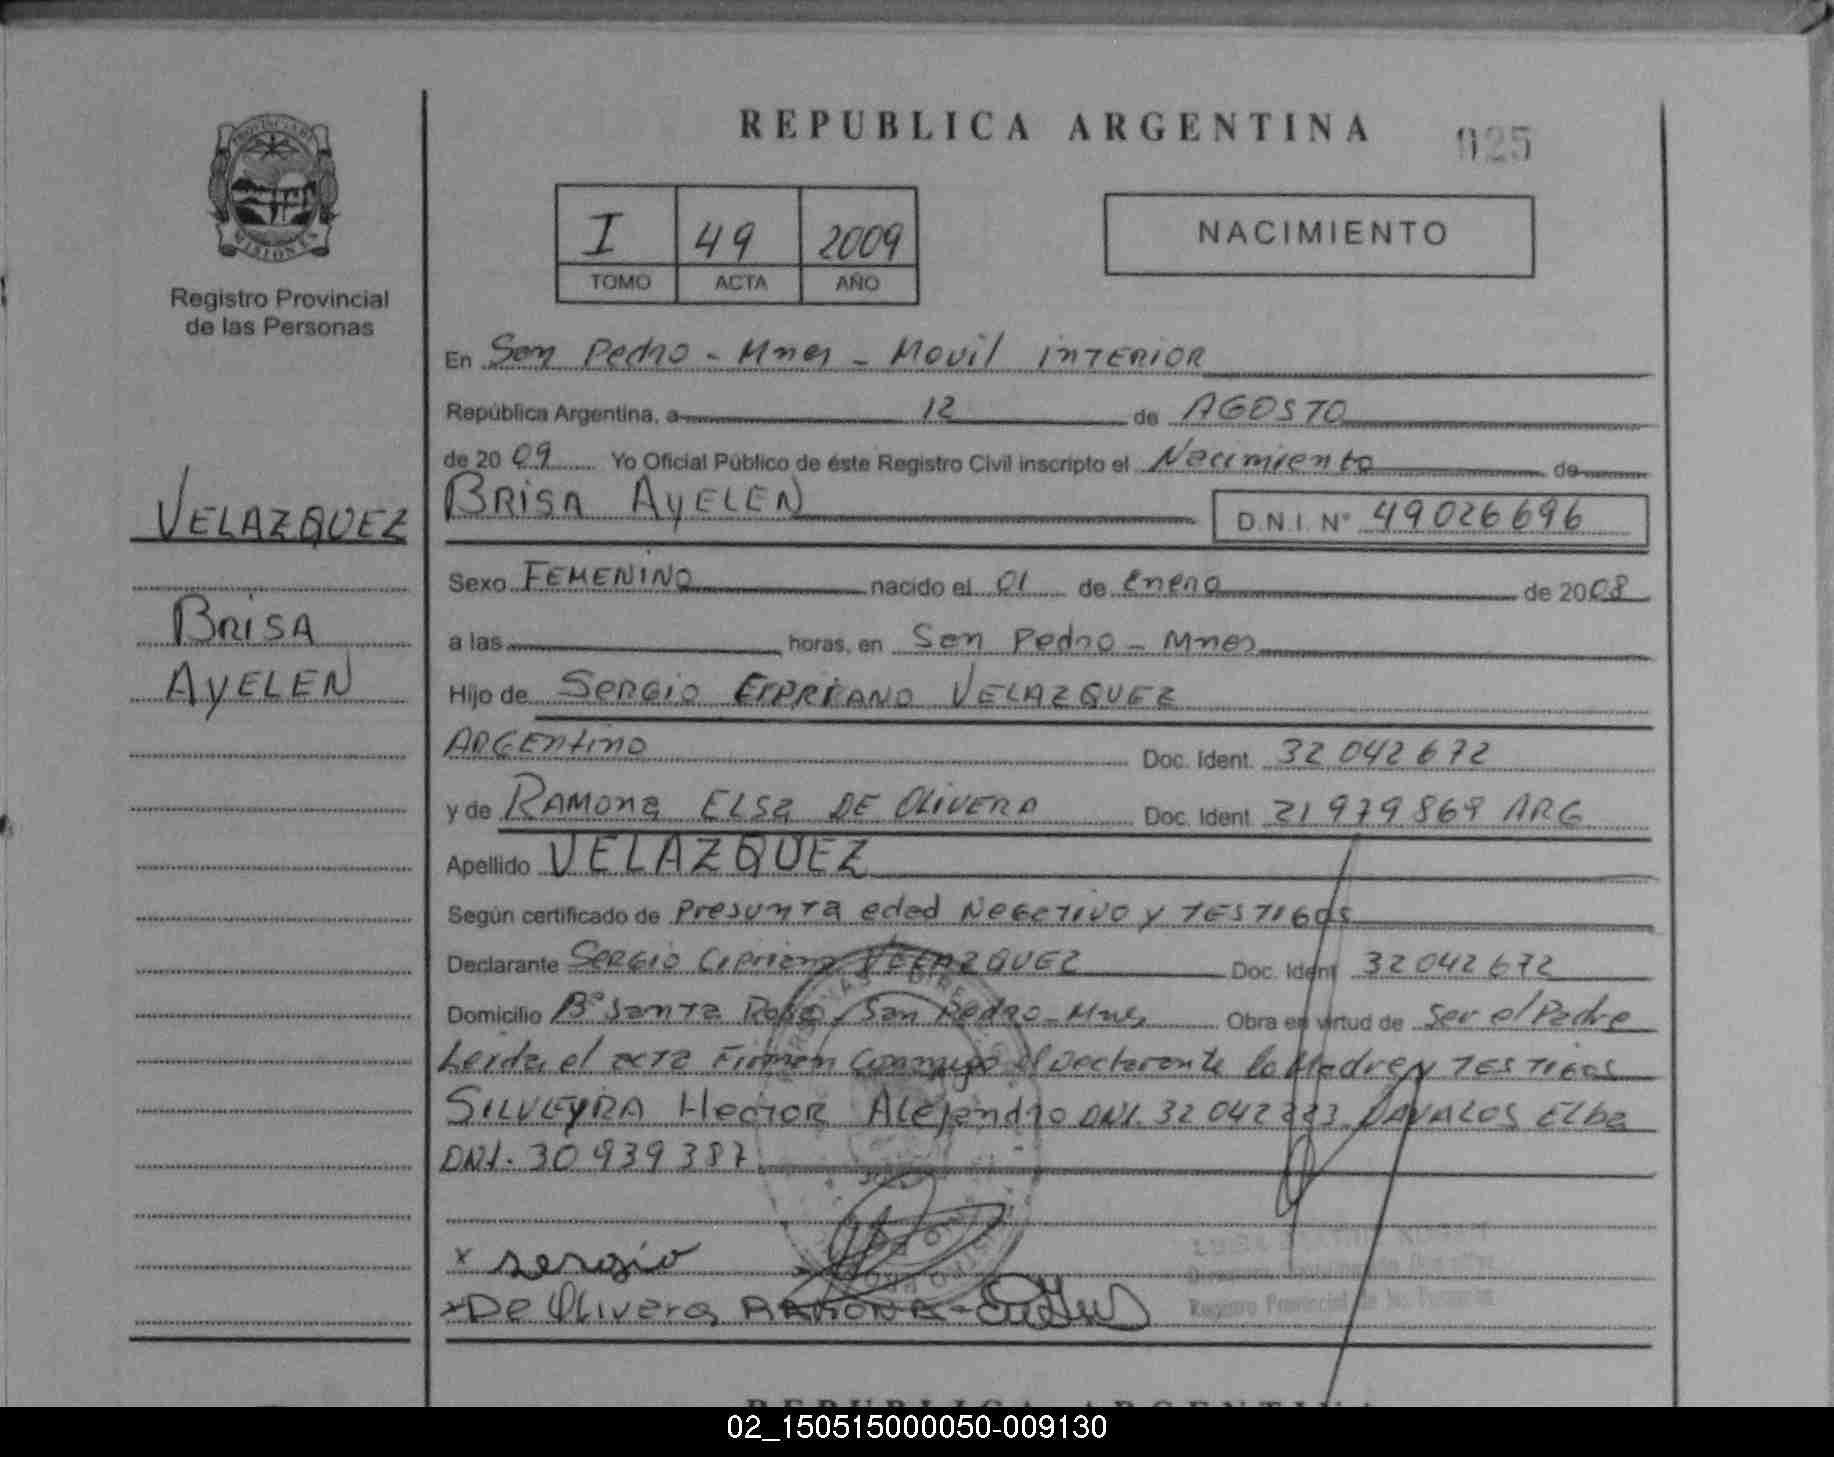 REPUBLICA ARGENTINA
025
PROVINCIA DE
MISIONES
Registro Provincial
de las Personas
I 49 2009
TOMO ACTA AÑO
NACIMIENTO
En San Pedro - Mnes - Movil INTERIOR
República Argentina, a 12 de AGOSTO
de 20 09 Yo Oficial Público de éste Registro Civil inscripto el Nacimiento de
VELAZQUEZ
BRISA AYELEN
D.N.I. Nº 49026696
Sexo FEMENINO nacido el 01 de Enero de 2008
BRISA
a las horas, en San Pedro - Mnes
AYELEN
Hijo de SERGIO CIPRIANO VELAZQUEZ
ARGENTINO Doc. Ident. 32 042 672
y de RAMONA ELSA DE OLIVERA Doc. Ident. 21 979 869 ARG
Apellido VELAZQUEZ
Según certificado de Presunta edad Negativo y TESTIGOS
Declarante SERGIO Cipriano VELAZQUEZ Doc. Ident 32042672
Domicilio Bº Santa Rosa, San Pedro - Mnes Obra en virtud de Ser el Padre
Leida el acta Firman Conmigo el Declarante la Madre y TESTIGOS
SILVEYRA HECTOR Alejandro DNI. 32 042 DAVALOS Elba
DNI. 30 939 387
x sergio
x De Olivera RAMONA
Registro Provincial de las Personas
REPUBLICA ARGENTINA
02_150515000050-009130